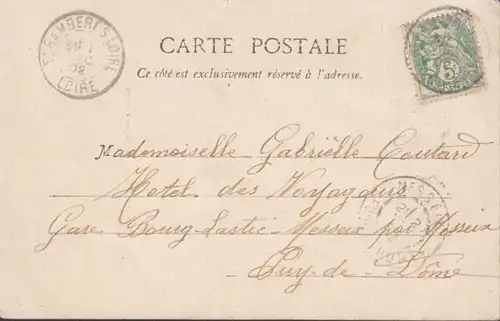 ST RAMBERT S LOIRE
02
LOIRE
CARTE POSTALE
Ce côté est exclusivement réservé à l'adresse.
5
Mademoiselle Gabriëlle Coutard
Hotel des Voyageurs
Gare Bourg-Lastic-Messeix par Messeix
Puy-de-Dôme